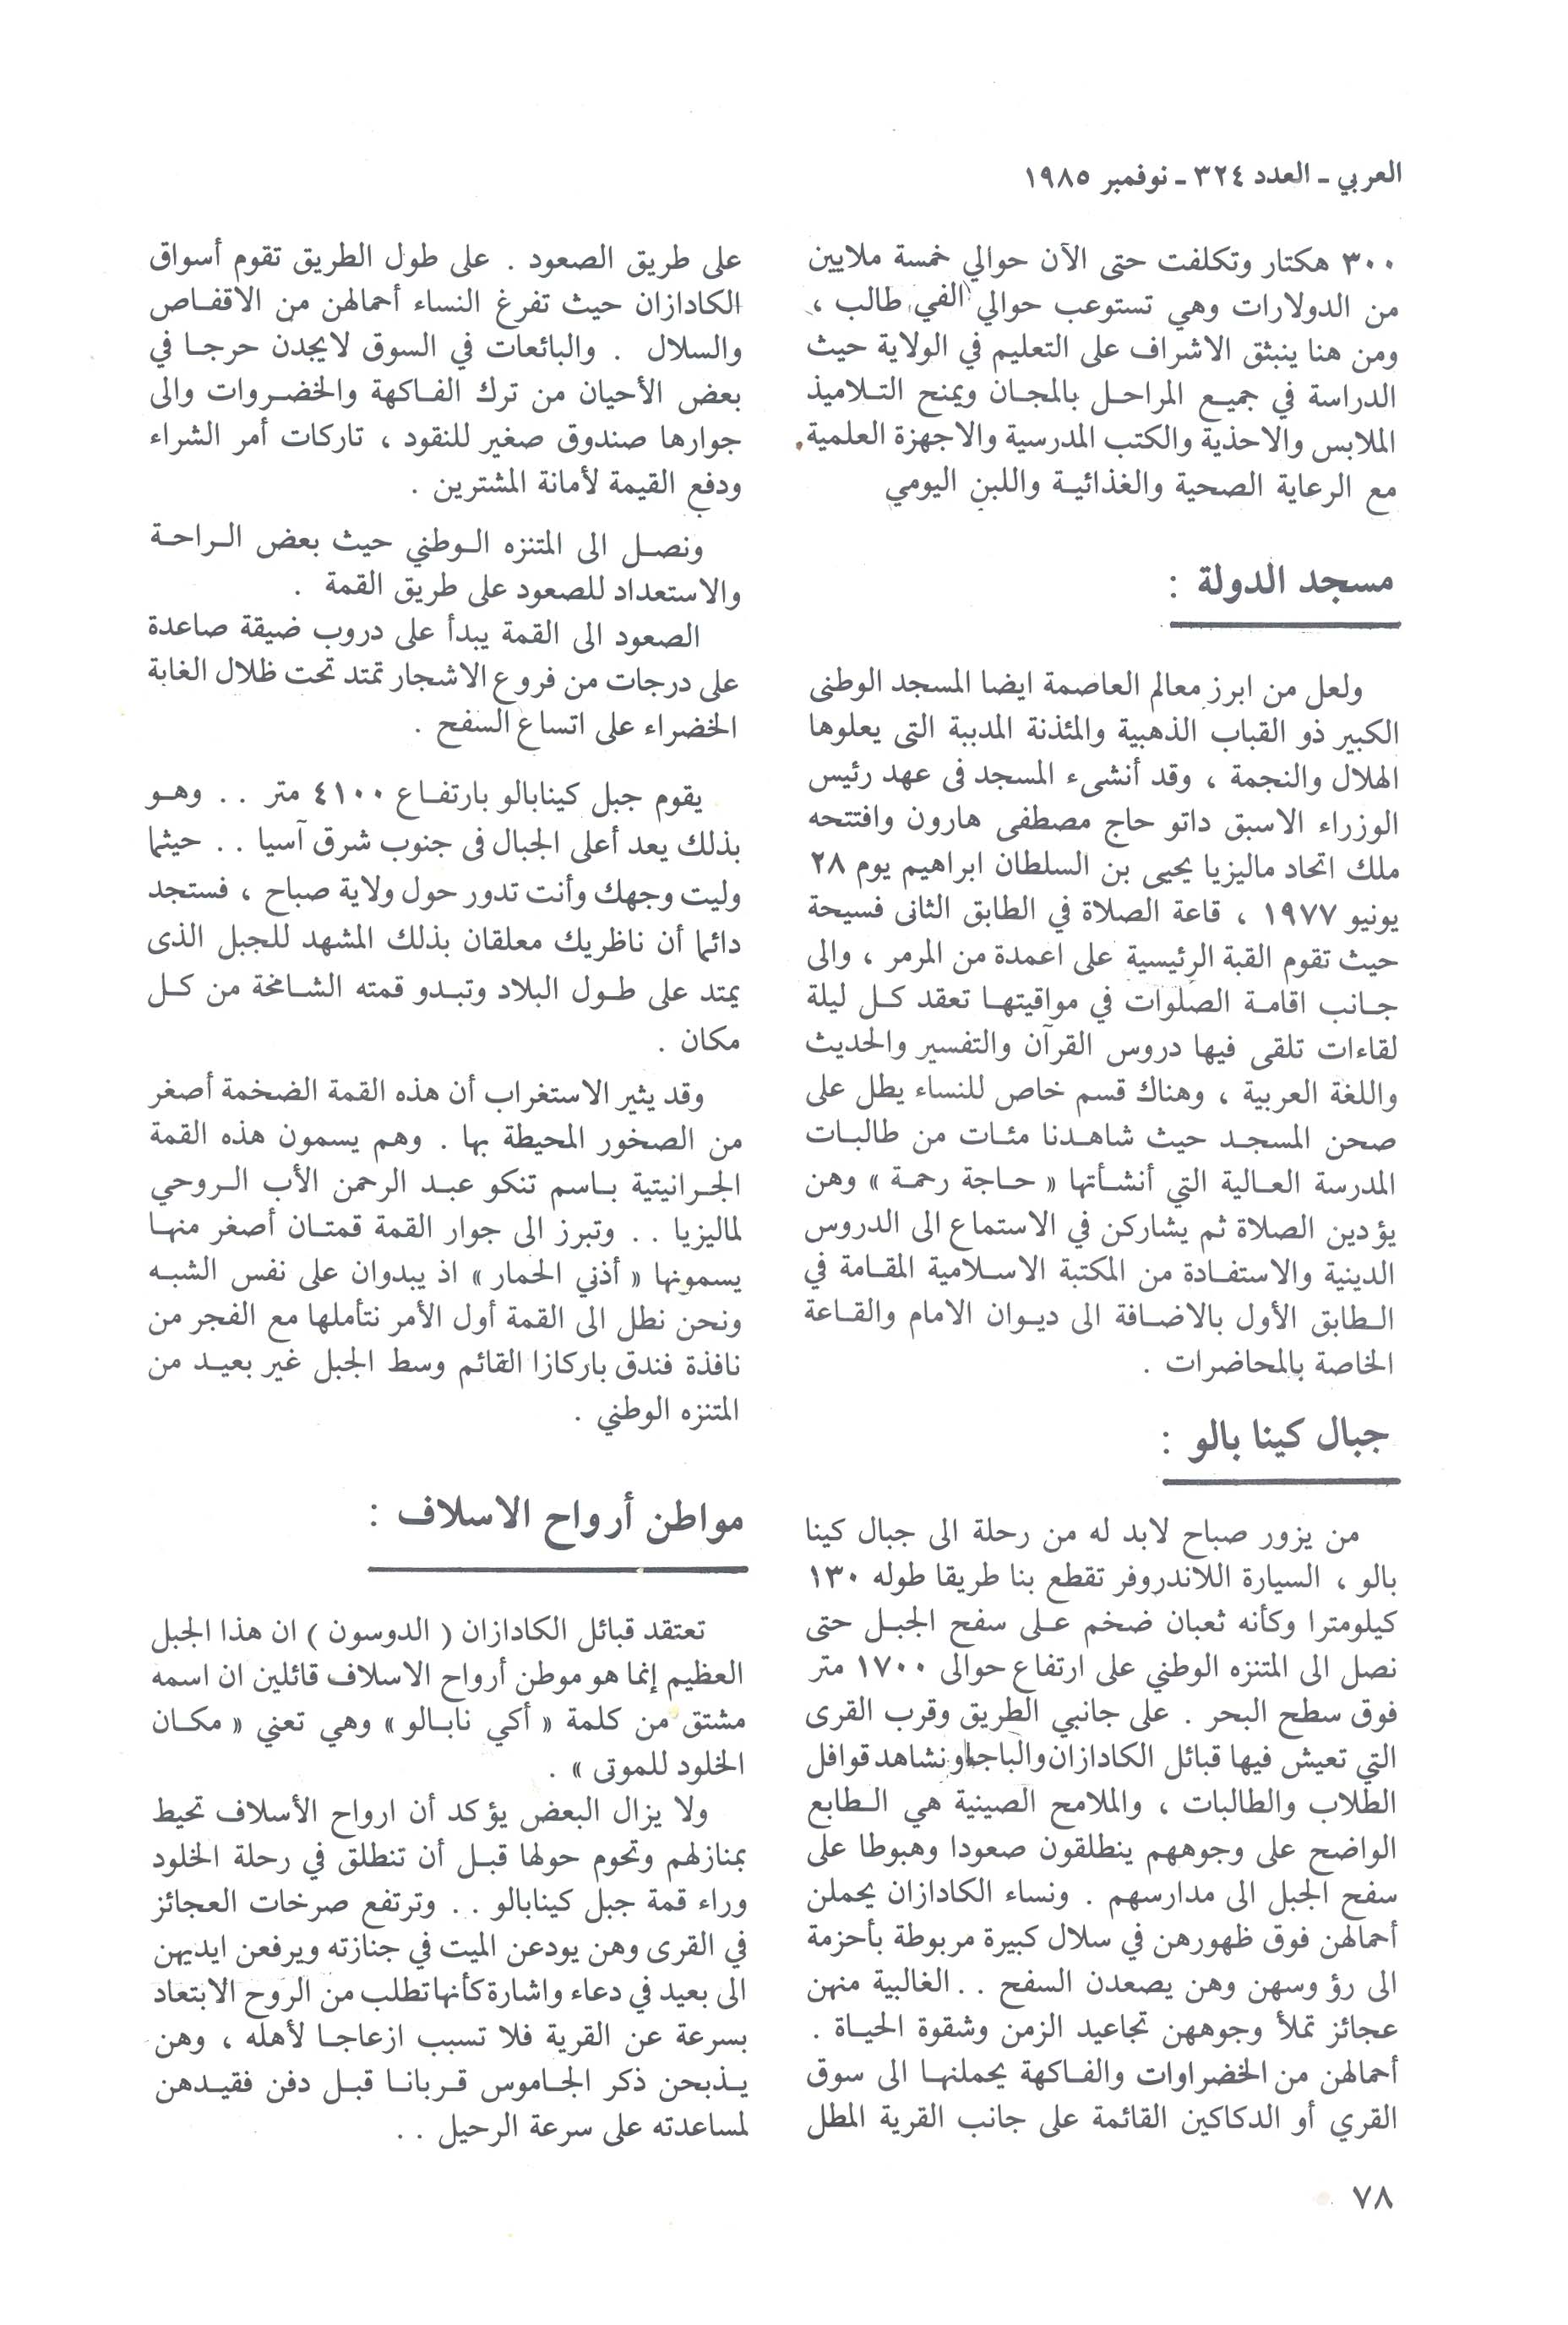 العربي ـ العدد ٣٢٤ ـ نوفمبر ١٩٨٥
٣٠٠ هكتار وتكلفت حتى الآن حوالي خمسة ملايين
من الدولارات وهي تستوعب حوالي الفي طالب ،
ومن هنا ينبثق الاشراف على التعليم في الولاية حيث
الدراسة في جميع المراحل بالمجان ويمنح التلاميذ
الملابس والاحذية والكتب المدرسية والاجهزة العلمية .
مع الرعاية الصحية والغذائية واللبن اليومي
مسجد الدولة :
ولعل من ابرز معالم العاصمة ايضا المسجد الوطنى
الكبير ذو القباب الذهبية والمئذنة المدببة التى يعلوها
الهلال والنجمة ، وقد أنشىء المسجد فى عهد رئيس
الوزراء الاسبق داتو حاج مصطفى هارون وافتتحه
ملك اتحاد ماليزيا يحيى بن السلطان ابراهيم يوم ٢٨
يونيو ١٩٧٧ ، قاعة الصلاة في الطابق الثانى فسيحة
حيث تقوم القبة الرئيسية على اعمدة من المرمر ، والى
جانب اقامة الصلوات في مواقيتها تعقد كل ليلة
لقاءات تلقى فيها دروس القرآن والتفسير والحديث
واللغة العربية ، وهناك قسم خاص للنساء يطل على
صحن المسجد حيث شاهدنا مئات من طالبات
المدرسة العالية التي أنشأتها « حاجة رحمة » وهن
يؤدين الصلاة ثم يشاركن في الاستماع الى الدروس
الدينية والاستفادة من المكتبة الاسلامية المقامة في
الطابق الأول بالاضافة الى ديوان الامام والقاعة
الخاصة بالمحاضرات .
جبال كينا بالو :
من يزور صباح لابد له من رحلة الى جبال كينا
بالو ، السيارة اللاندروفر تقطع بنا طريقا طوله ١٣٠
كيلومترا وكأنه ثعبان ضخم على سفح الجبل حتى
نصل الى المتنزه الوطني على ارتفاع حوالى ١٧٠٠ متر
فوق سطح البحر . على جانبي الطريق وقرب القرى
التي تعيش فيها قبائل الكادازان والباجاو نشاهد قوافل
الطلاب والطالبات ، والملامح الصينية هي الطابع
الواضح على وجوههم ينطلقون صعودا وهبوطا على
سفح الجبل الى مدارسهم . ونساء الكادازان يحملن
أحمالهن فوق ظهورهن في سلال كبيرة مربوطة بأحزمة
الى رؤوسهن وهن يصعدن السفح . . الغالبية منهن
عجائز تملأ وجوههن تجاعيد الزمن وشقوة الحياة .
أحمالهن من الخضراوات والفاكهة يحملنها الى سوق
القري أو الدكاكين القائمة على جانب القرية المطل
على طريق الصعود . على طول الطريق تقوم أسواق
الكادازان حيث تفرغ النساء أحمالهن من الاقفاص
والسلال . والبائعات في السوق لايجدن حرجا في
بعض الأحيان من ترك الفاكهة والخضروات والى
جوارها صندوق صغير للنقود ، تاركات أمر الشراء
ودفع القيمة لأمانة المشترين .
ونصل الى المتنزه الوطني حيث بعض الراحة
والاستعداد للصعود على طريق القمة .
الصعود الى القمة يبدأ على دروب ضيقة صاعدة
على درجات من فروع الاشجار تمتد تحت ظلال الغابة
الخضراء على اتساع السفح .
يقوم جبل كينابالو بارتفاع ٤١٠٠ متر . . وهو
بذلك يعد أعلى الجبال فى جنوب شرق آسيا . . حيثما
وليت وجهك وأنت تدور حول ولاية صباح ، فستجد
دائما أن ناظريك معلقان بذلك المشهد للجبل الذى
يمتد على طول البلاد وتبدو قمته الشامخة من كل
مكان .
وقد يثير الاستغراب أن هذه القمة الضخمة أصغر
من الصخور المحيطة بها . وهم يسمون هذه القمة
الجرانيتية باسم تنكو عبد الرحمن الأب الروحي
لماليزيا . . وتبرز الى جوار القمة قمتان أصغر منها
يسمونها « أذني الحمار » اذ يبدوان على نفس الشبه
ونحن نطل الى القمة أول الأمر نتأملها مع الفجر من
نافذة فندق باركازا القائم وسط الجبل غير بعيد من
المتنزه الوطني .
مواطن أرواح الاسلاف :
تعتقد قبائل الكادازان ( الدوسون ) ان هذا الجبل
العظيم إنما هو موطن أرواح الاسلاف قائلين ان اسمه
مشتق من كلمة « أكي نابالو » وهي تعني « مكان
الخلود للموتى » .
ولا يزال البعض يؤكد أن ارواح الأسلاف تحيط
بمنازلهم وتحوم حولها قبل أن تنطلق في رحلة الخلود
وراء قمة جبل كينابالو . . وترتفع صرخات العجائز
في القرى وهن يودعن الميت في جنازته ويرفعن ايديهن
الى بعيد في دعاء واشارة كأنها تطلب من الروح الابتعاد
بسرعة عن القرية فلا تسبب ازعاجا لأهله ، وهن
يذبحن ذكر الجاموس قربانا قبل دفن فقيدهن
لمساعدته على سرعة الرحيل . .
٧٨